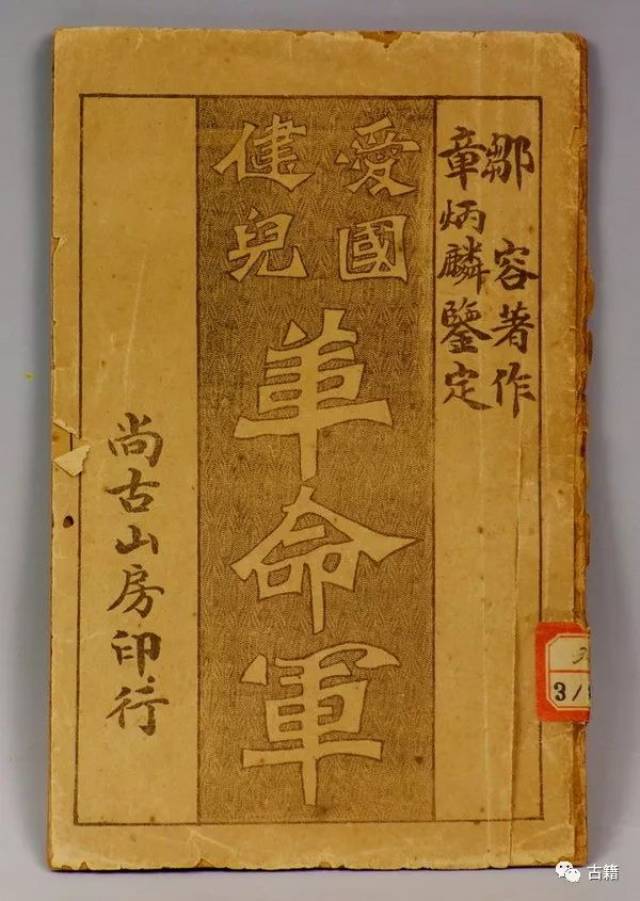 鄒容著作
章炳麟鑒定
愛國
健兒
革命軍
尚古山房印行
3/
古籍